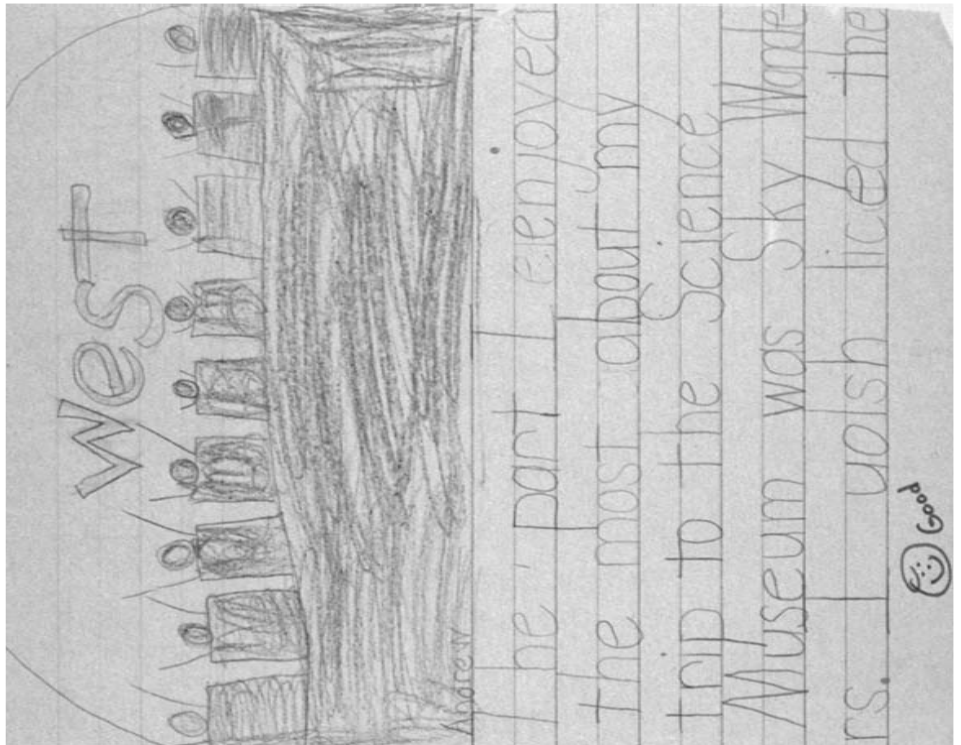 West
The part I eenjoyed
the most about my
trip to the Science
Museum was Sky Wonde
rs. I uolsh liced the
Good